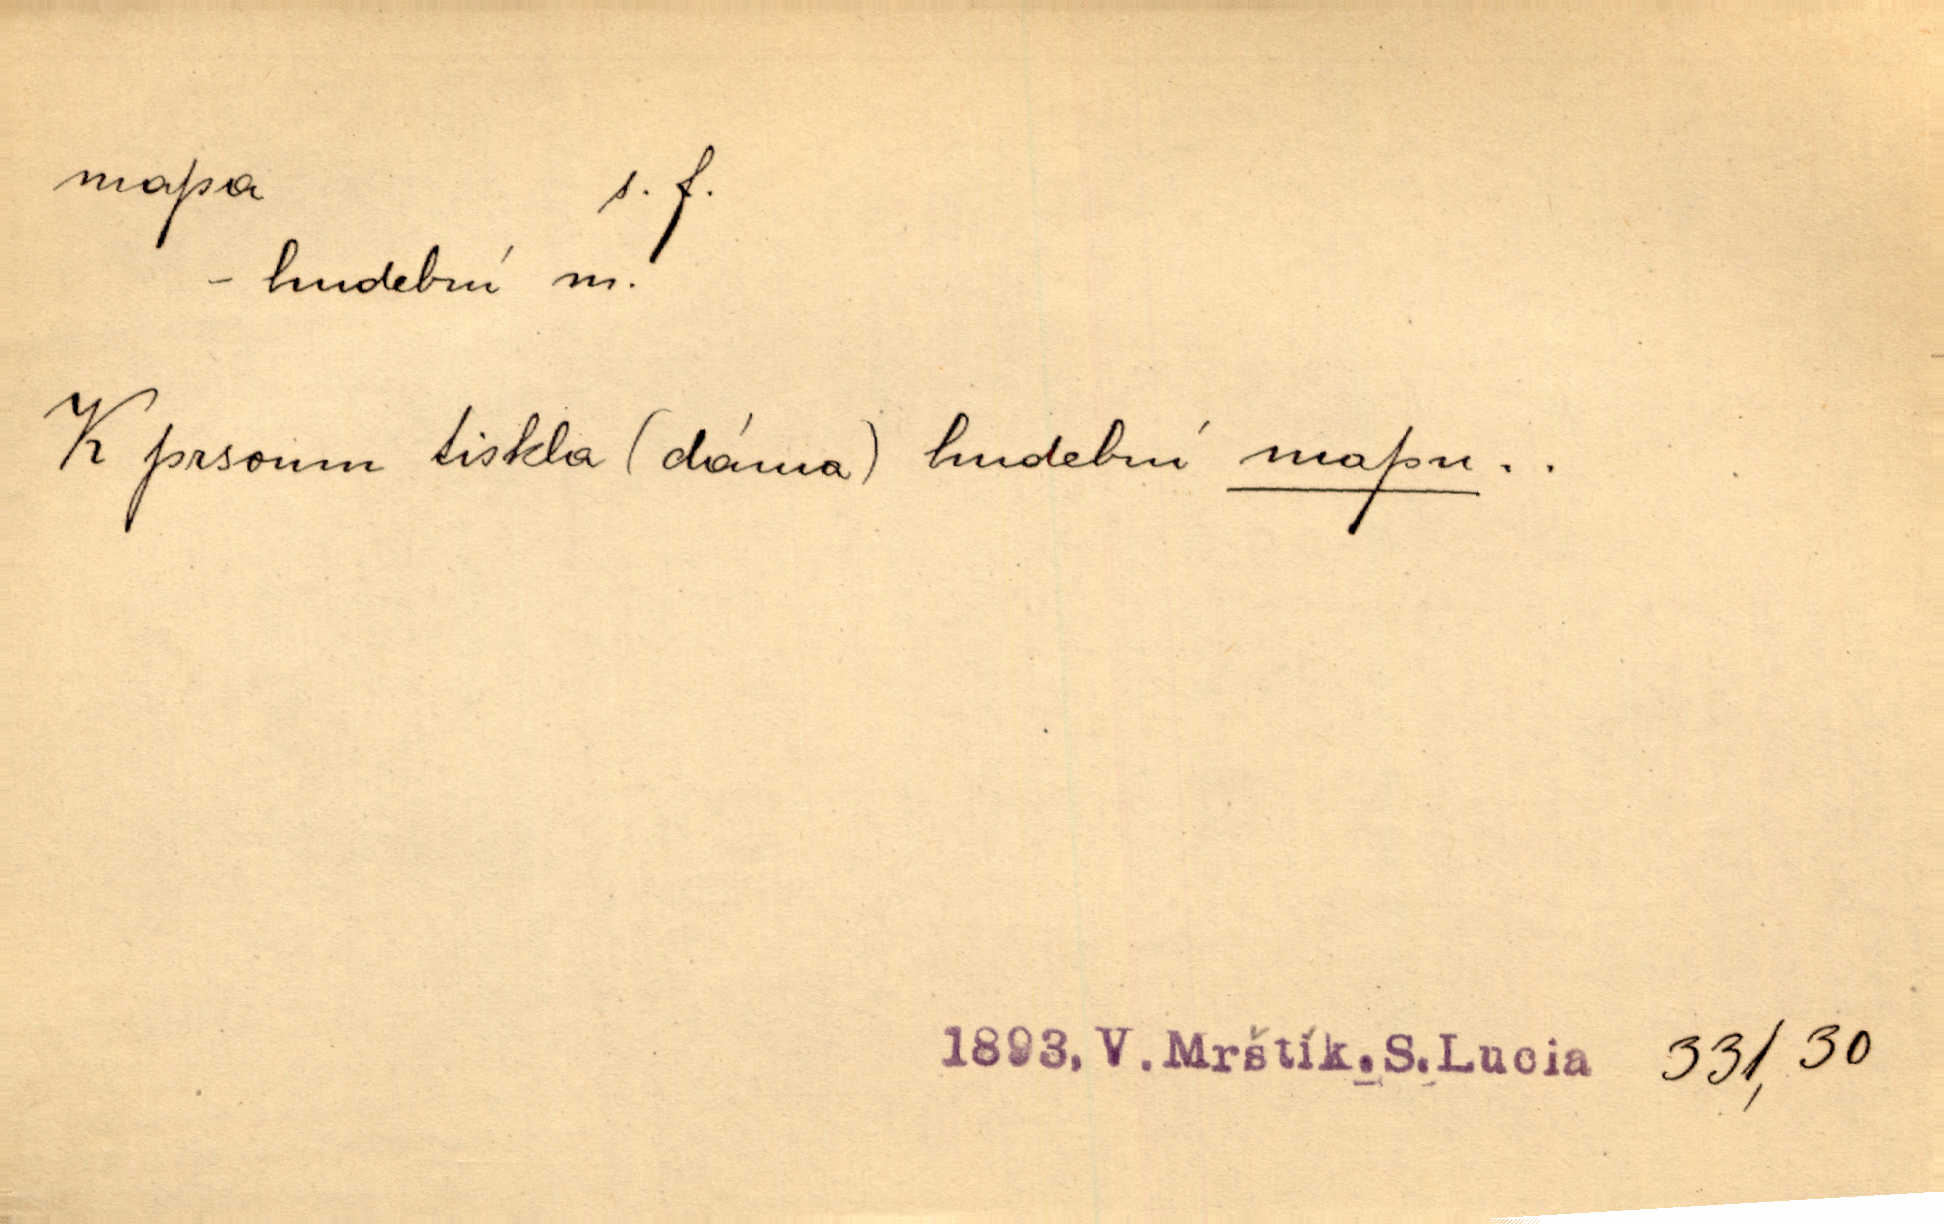 mapa s. f.
- hudební m.
K prsoum tiskla (dáma) hudební mapu..
1893, V. Mrštík. S. Lucia 331, 30